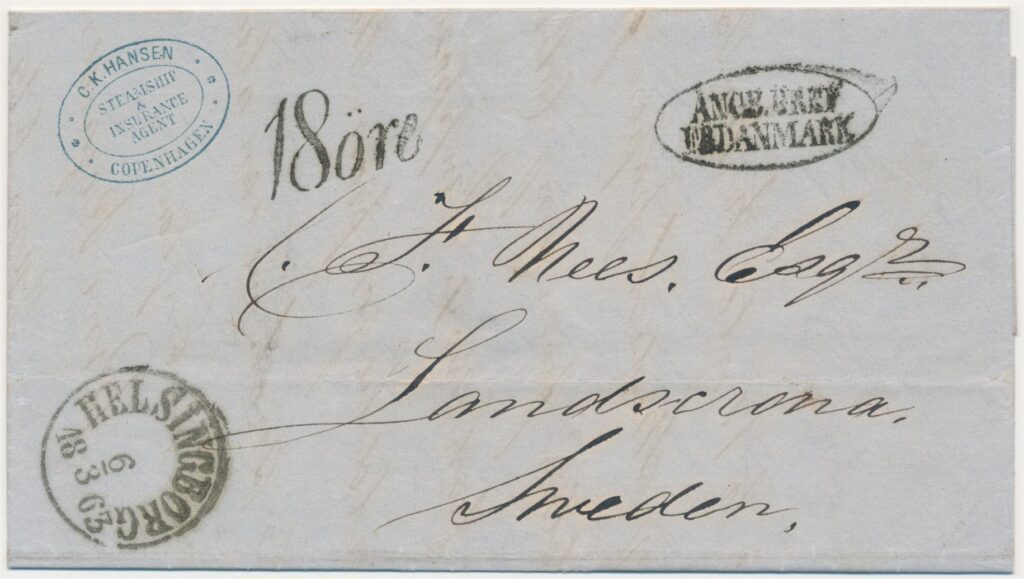 C.K. HANSEN
STEAMSHIP
&
INSURANCE
AGENT
COPENHAGEN
18öre
ÅNGB. BREF
FR. DANMARK
F. Nees. Esqr.
Landscrona.
Sweden.
HELSINGBORG
6
18 3 63